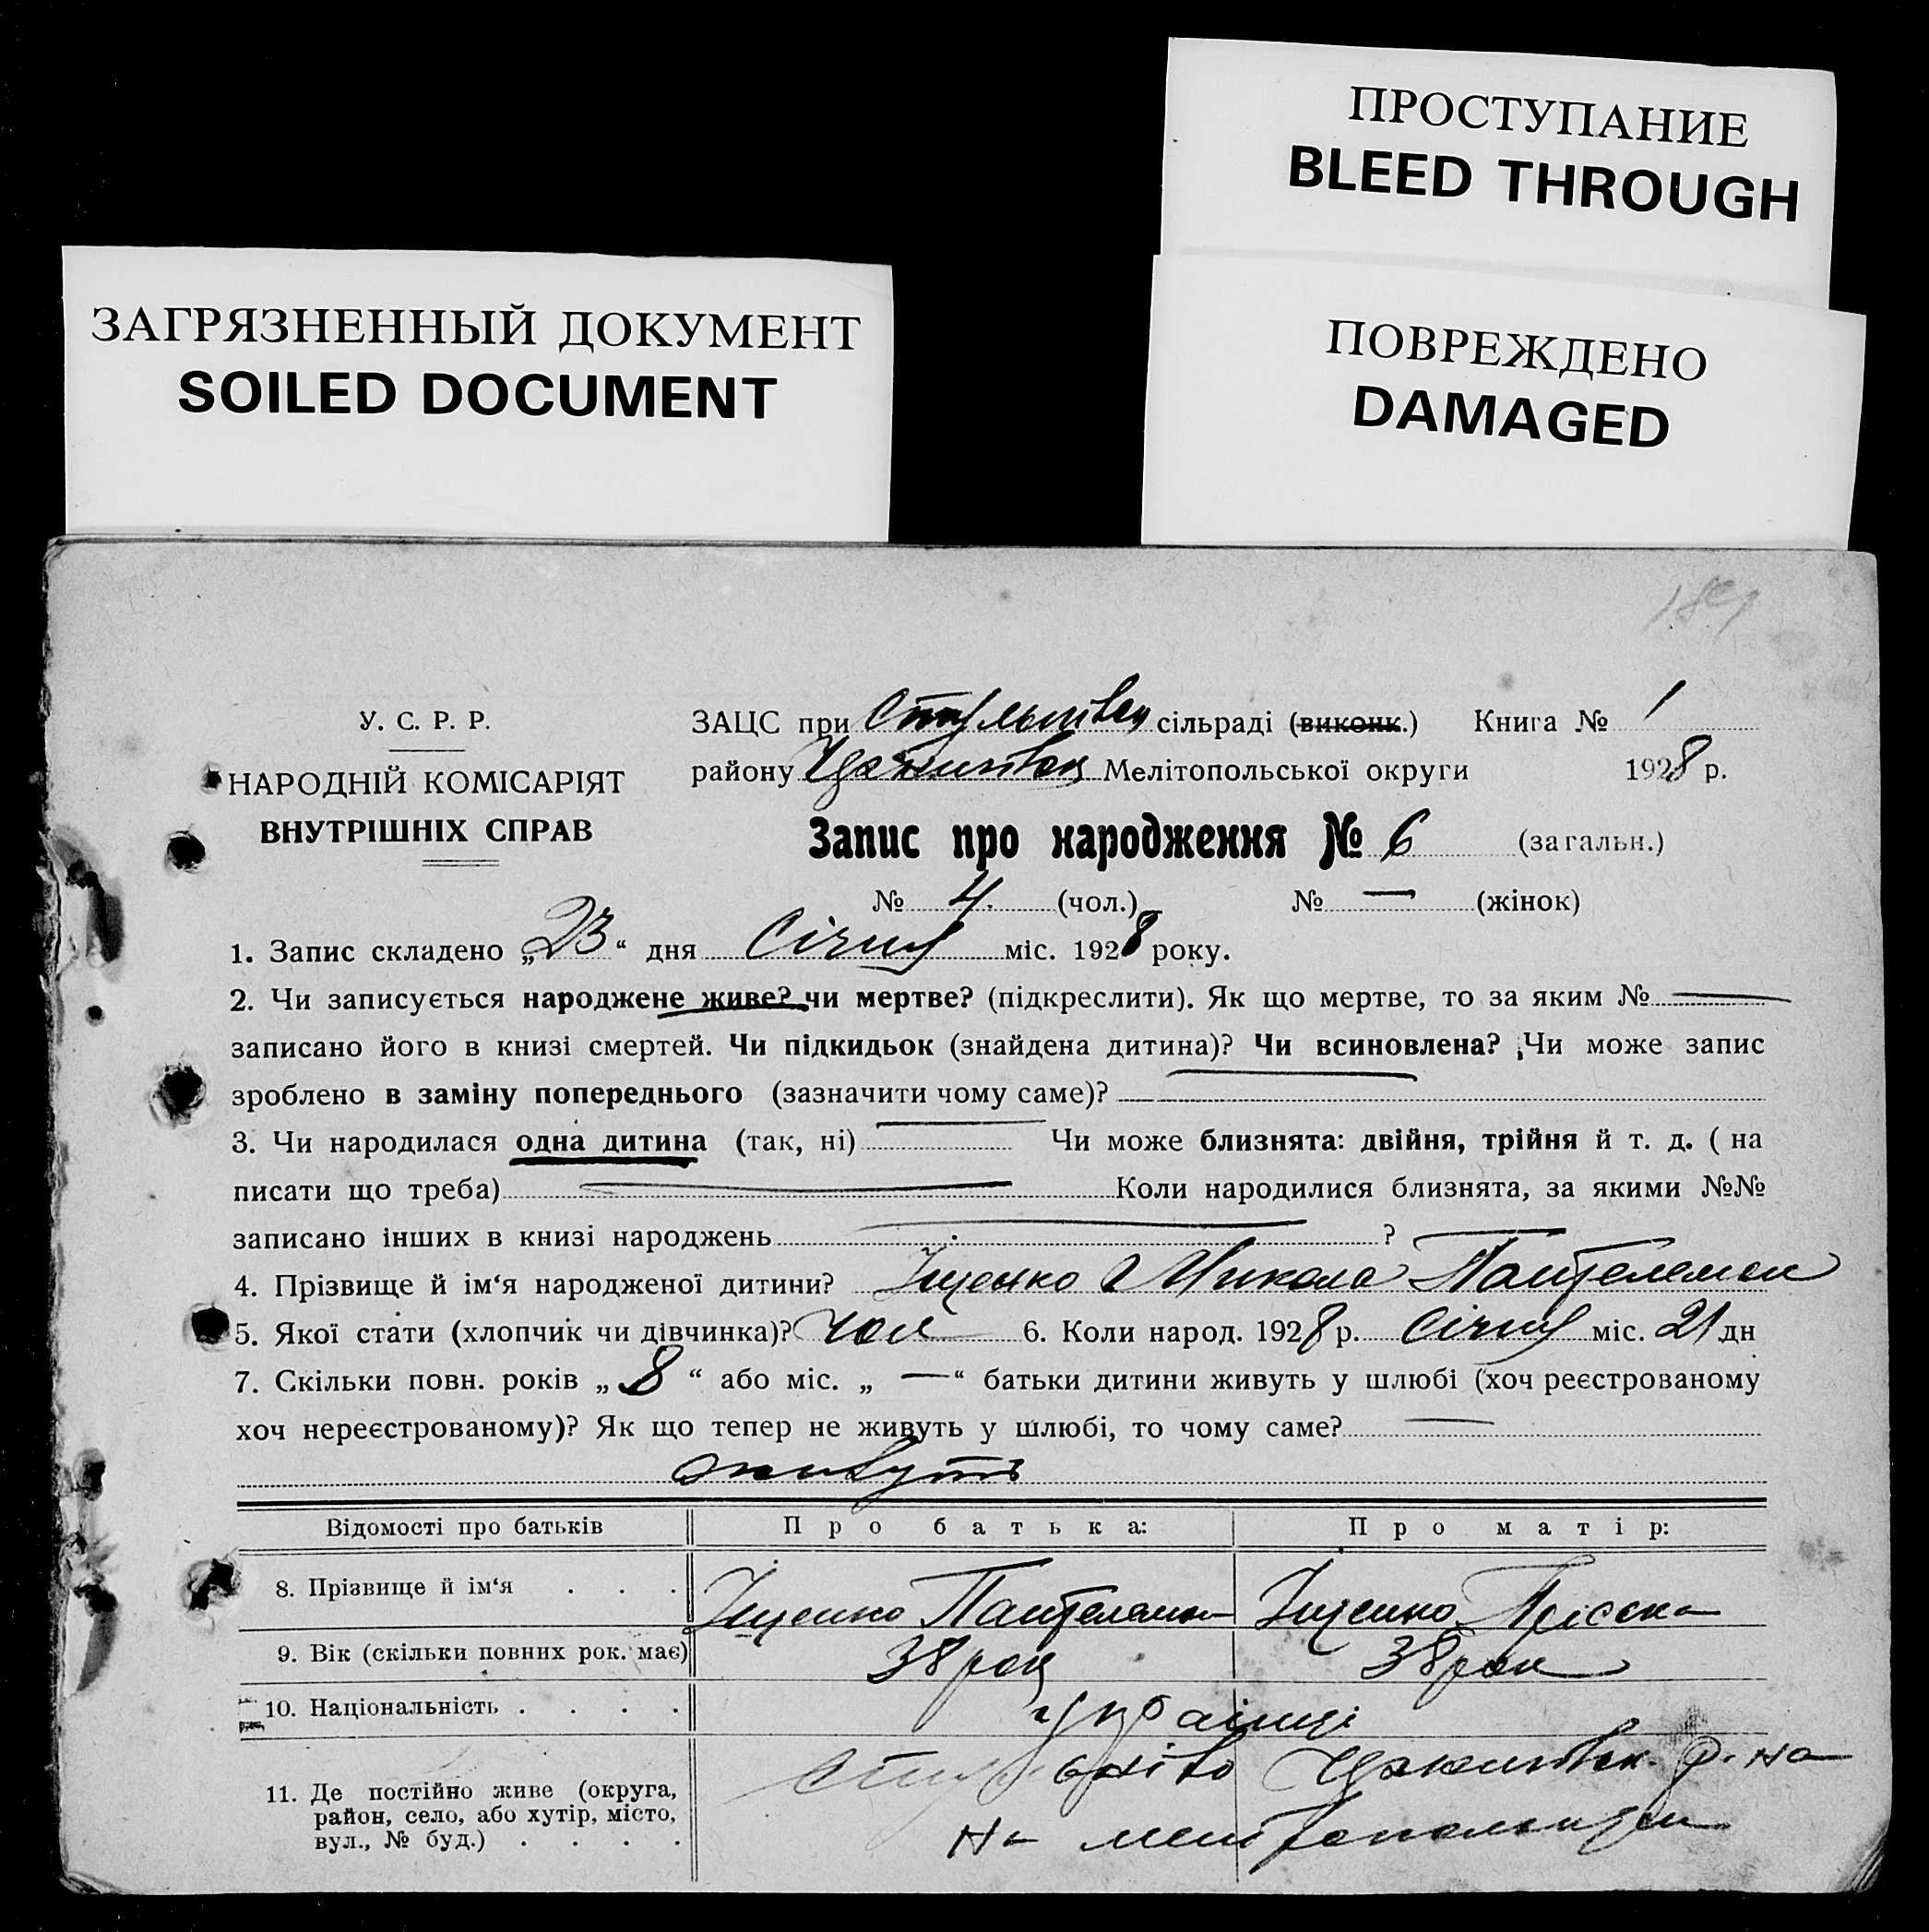 ПРОСТУПАНИЕ
BLEED THROUGH
ЗАГРЯЗНЕННЫЙ ДОКУМЕНТ
SOILED DOCUMENT
ПОВРЕЖДЕНО
DAMAGED
У. С. Р. Р.
НАРОДНІЙ КОМІСАРІЯТ
ВНУТРІШНІХ СПРАВ
ЗАЦС при сільраді (виконк.) Книга № 1
району Мелітопольської округи 1928 р.
Запис про народження № 6 (загальн.)
№ 4. (чол.) № — (жінок)
1. Запис складено „23“ дня Січня міс. 1928 року.
2. Чи записується народжене живе? чи мертве? (підкреслити). Як що мертве, то за яким № —
записано його в книзі смертей. Чи підкидьок (знайдена дитина)? Чи всиновлена? Чи може запис
зроблено в заміну попереднього (зазначити чому саме)? —
3. Чи народилася одна дитина (так, ні) — Чи може близнята: двійня, трійня й т. д. ( на
писати що треба) — Коли народилися близнята, за якими №№
записано інших в книзі народжень — ?
4. Прізвище й ім‘я народженої дитини? Іщенко Микола Пантелемон
5. Якої стати (хлопчик чи дівчинка)? чол 6. Коли народ. 1928 р. Січня міс. 21 дн
7. Скільки повн. років „ 8 “ або міс. „ — “ батьки дитини живуть у шлюбі (хоч реєстрованому
хоч нереєстрованому)? Як що тепер не живуть у шлюбі, то чому саме? —
живуть
Відомості про батьків Про батька: Про матір:
8. Прізвище й ім‘я . . . Іщенко Пантелемон Іщенко Пріська
9. Вік (скільки повних рок. має) 38 рок 38 рок
10. Національність . . . . українці
11. Де постійно живе (округа,
район, село, або хутір, місто,
вул., № буд.) . . . .
р-на
на